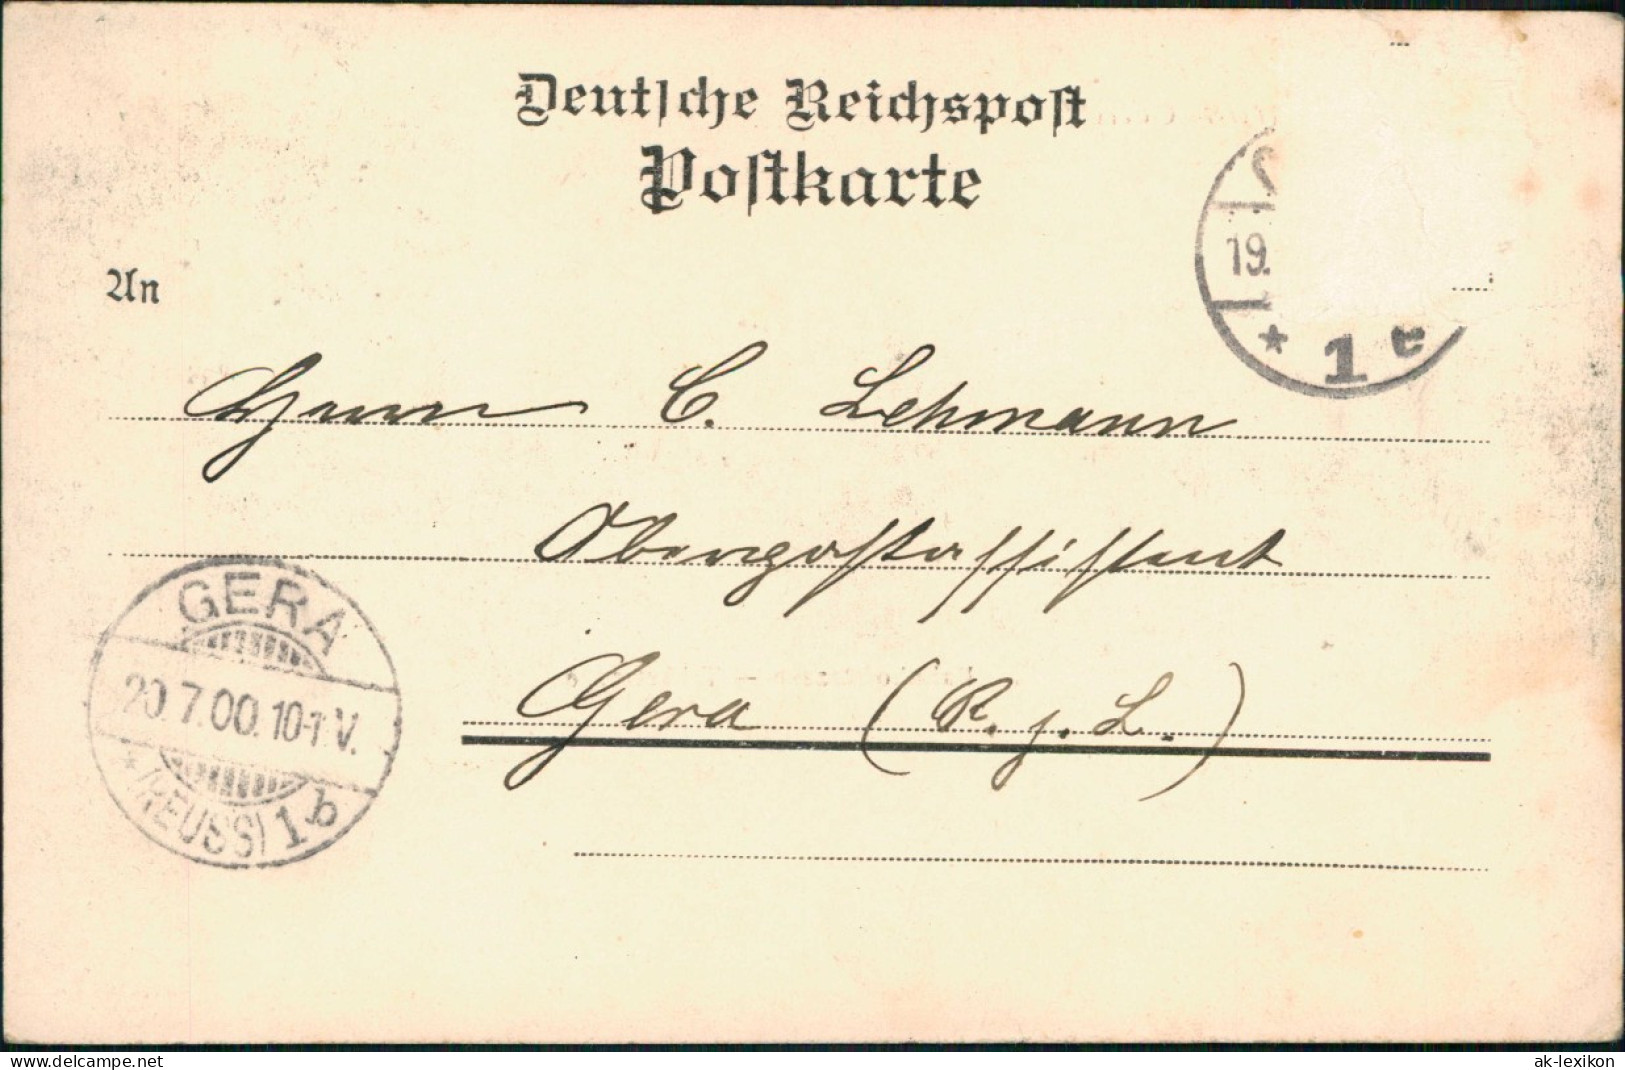 Deutsche Reichspost
Postkarte
19.
* 1 c
An
Herrn C. Lehmann
Oberpostassistent
Gera (R. j. L.)
GERA
20.7.00. 10-11 V.
* (REUSS) 1 b
www.delcampe.net
ak-lexikon